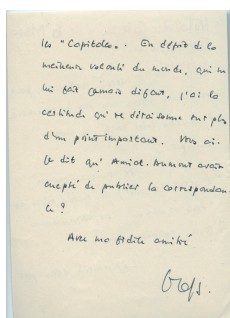 les "Capitales". En dépit de la
meilleure volonté du monde, qui ne
lui fait jamais défaut, j'ai la
certitude qu'il déraisonne sur plus
d'un point important. Vous ai-
je dit qu'Amiot-Dumont avait
accepté de publier la correspondan-
ce ?
Avec ma fidèle amitié